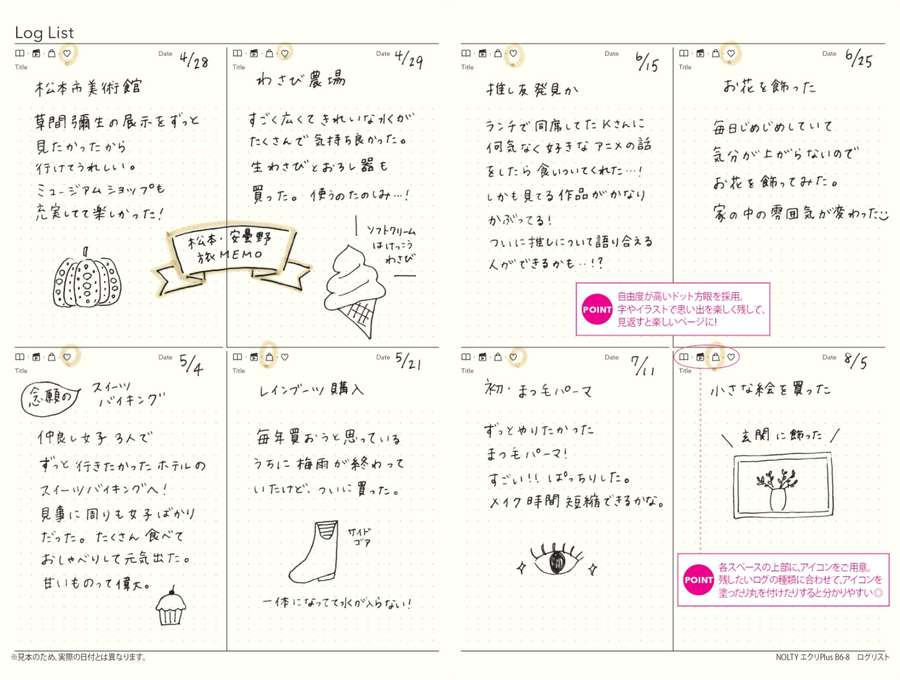 Log List
Date 4/28
Title
松本市美術館
草間彌生の展示をずっと
見たかったから
行けてうれしい。
ミュージアムショップも
充実してて楽しかった!
Date 4/29
Title
わさび農場
すごく広くてきれいな水が
たくさんで気持ち良かった。
生わさびとおろし器も
買った。使うのたのしみ…!
ソフトクリーム
はけっこう
わさび
松本・安曇野
旅MEMO
Date 6/15
Title
推し友発見か
ランチで同席してたKさんに
何気なく好きなアニメの話
をしたら食いついてくれた…!
しかも見てる作品がかなり
かぶってる!
ついに推しについて語り合える
人ができるかも…!?
Date 6/25
Title
お花を飾った
毎日じめじめしていて
気分が上がらないので
お花を飾ってみた。
家の中の雰囲気が変わった
POINT
自由度が高いドット方眼を採用。
字やイラストで思い出を楽しく残して、
見返すと楽しいページに!
Date 5/4
Title
念願の
スイーツ
バイキング
仲良し女子3人で
ずっと行きたかったホテルの
スイーツバイキングへ!
見事に周りも女子ばかり
だった。たくさん食べて
おしゃべりして元気出た。
甘いものって偉大。
Date 5/21
Title
レインブーツ購入
毎年買おうと思っている
うちに梅雨が終わって
いたけど、ついに買った。
サイド
ゴア
一体になってて水が入らない!
Date 7/11
Title
初・まつ毛パーマ
ずっとやりたかった
まつ毛パーマ!
すごい!!ぱっちりした。
メイク時間短縮できるかな。
Date 8/5
Title
小さな絵を買った
\ 玄関に飾った /
POINT
各スペースの上部に、アイコンをご用意。
残したいログの種類に合わせて、アイコンを
塗ったり丸を付けたりすると分かりやすい◎
※見本のため、実際の日付とは異なります。
NOLTY エクリPlus B6-8 ログリスト